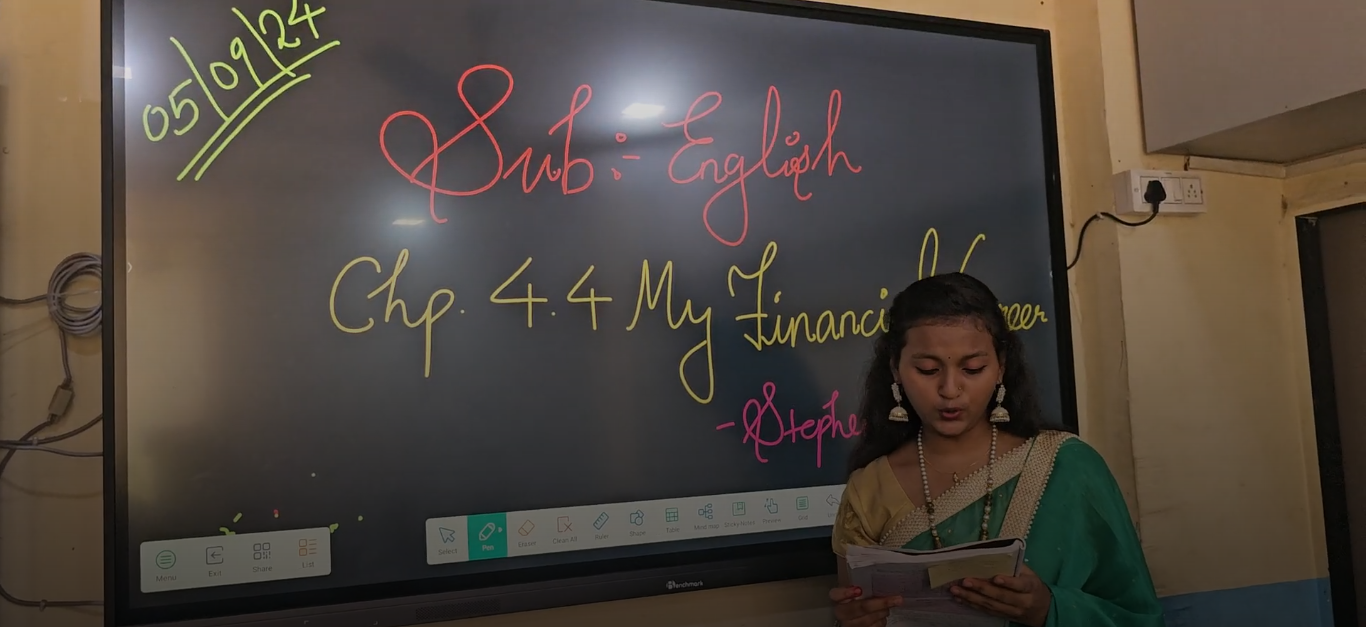 05/09/24
Sub:- English
Chp. 4.4 My Financi eer
- Stephe
Menu Exit Share List
Select Pen Eraser Clean All Ruler Shape Table Mind map Sticky Notes Preview Grid
Benchmark